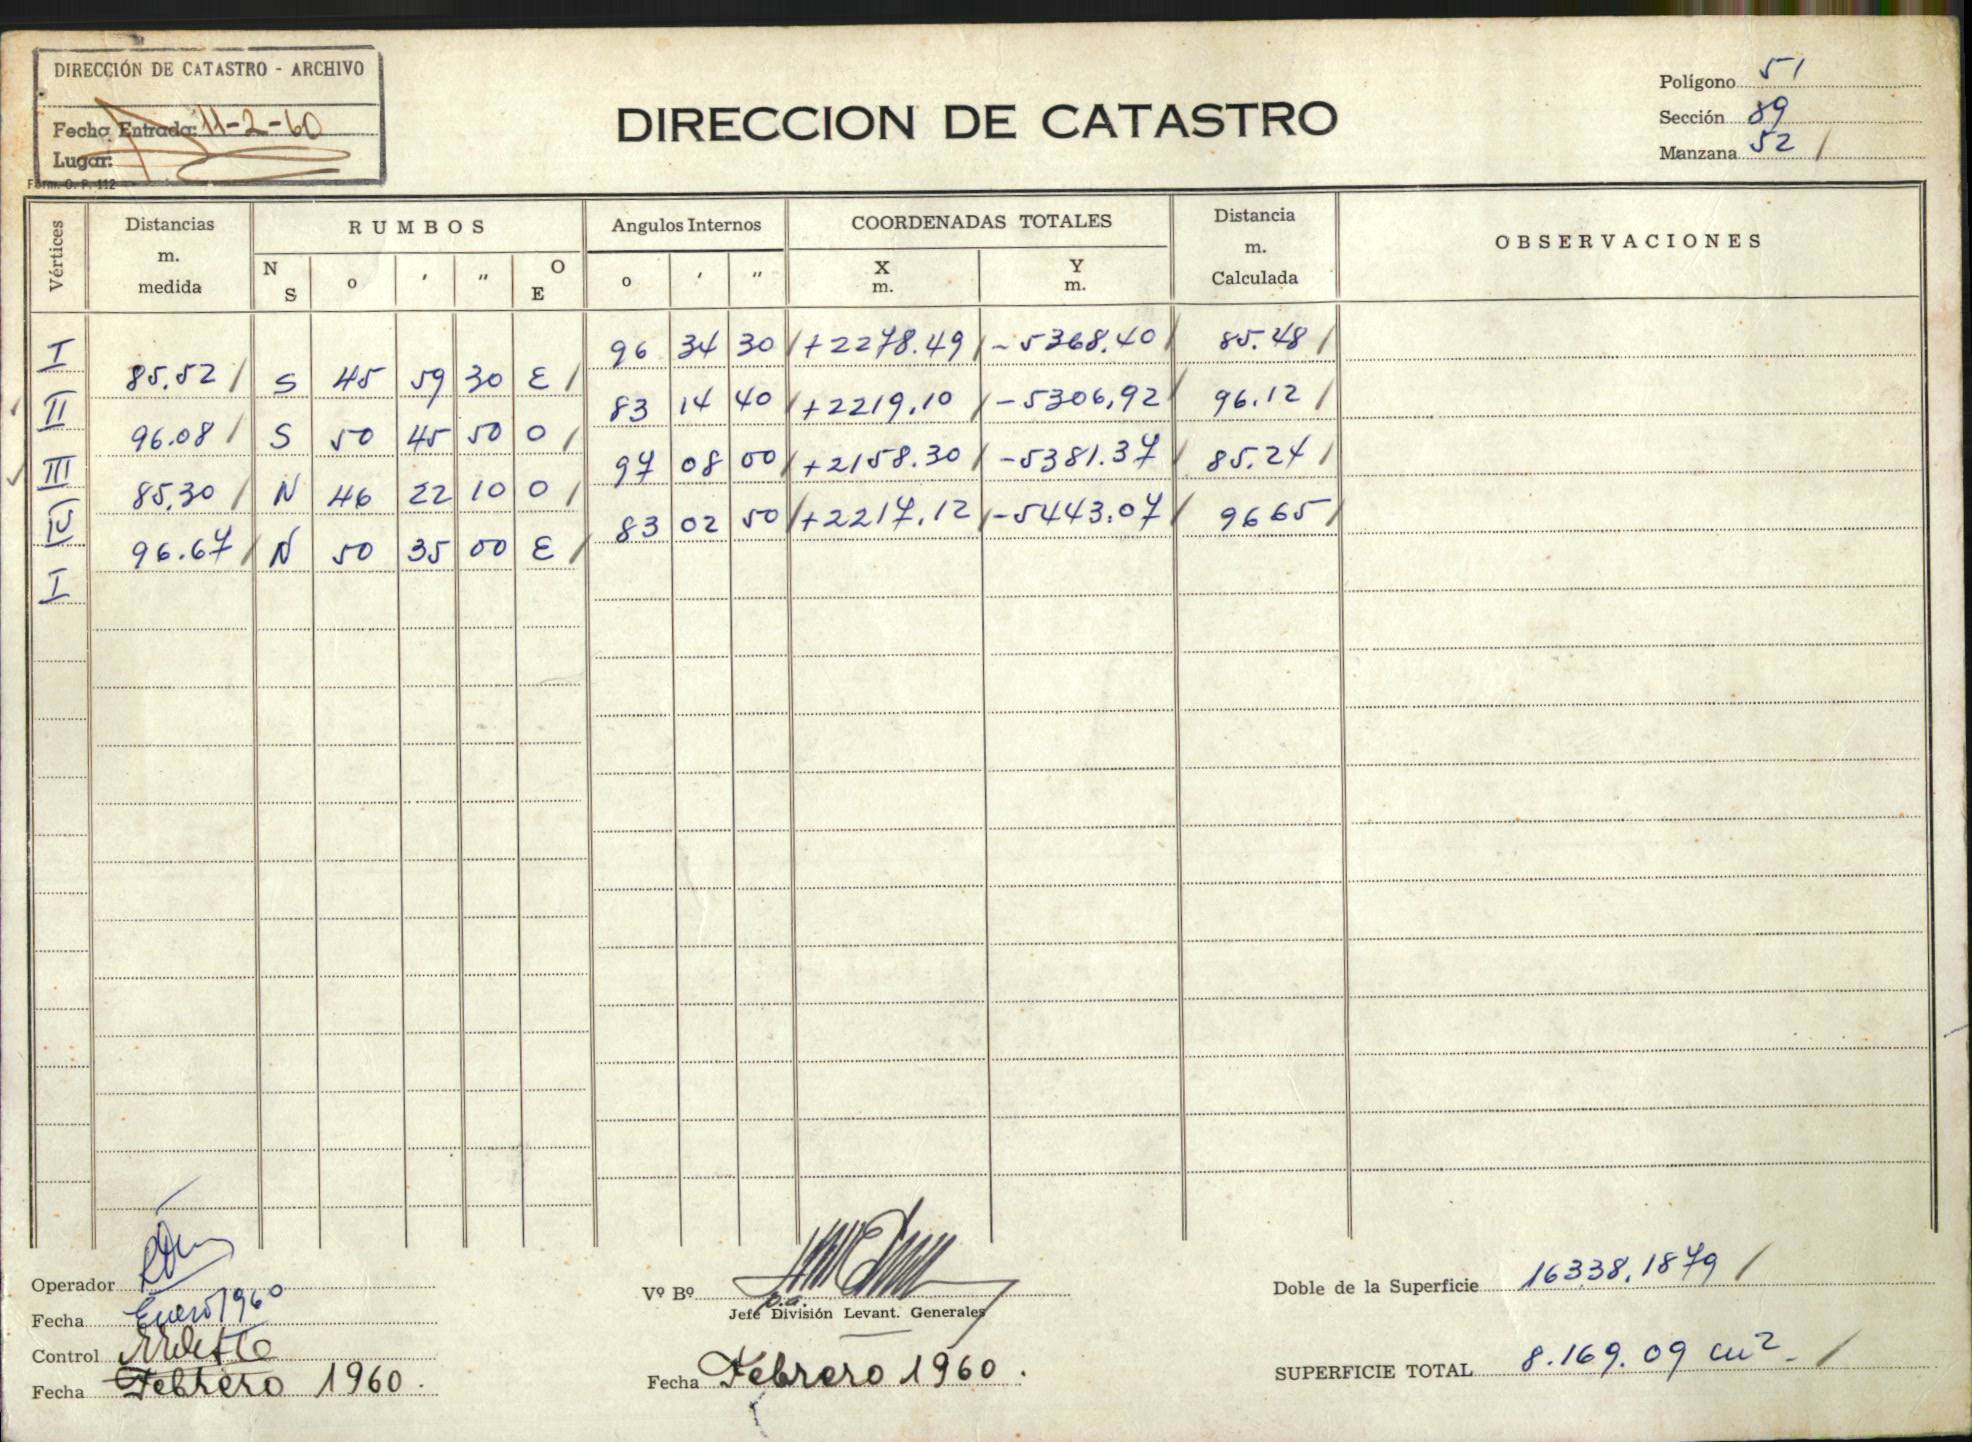 DIRECCIÓN DE CATASTRO - ARCHIVO
Fecha Entrada: 11-2-60
Lugar:
Form. O. P. 112
DIRECCION DE CATASTRO
Polígono 51
Sección 89
Manzana 52 /
Vértices Distancias m. medida RUMBOS Angulos Internos COORDENADAS TOTALES Distancia m. Calculada OBSERVACIONES
N S o ' " O E o ' " X m. Y m.
I 96 34 30 / +2278.49 / -5368.40 / 85.48 /
85.52 / S 45 59 30 E /
II 83 14 40 / +2219.10 / -5306,92 / 96.12 /
96.08 / S 50 45 50 O /
III 97 08 00 / +2158.30 / -5381.37 / 85.24 /
85,30 / N 46 22 10 O /
IV 83 02 50 / +2217.12 / -5443.07 / 96 65 /
96.67 / N 50 35 00 E /
I
Operador
Fecha Enero 1960
Control
Fecha Febrero 1960.
Vº Bº
p.a.
Jefe División Levant. Generales
Fecha Febrero 1960.
Doble de la Superficie 16338,1879 /
SUPERFICIE TOTAL 8.169.09 m². /